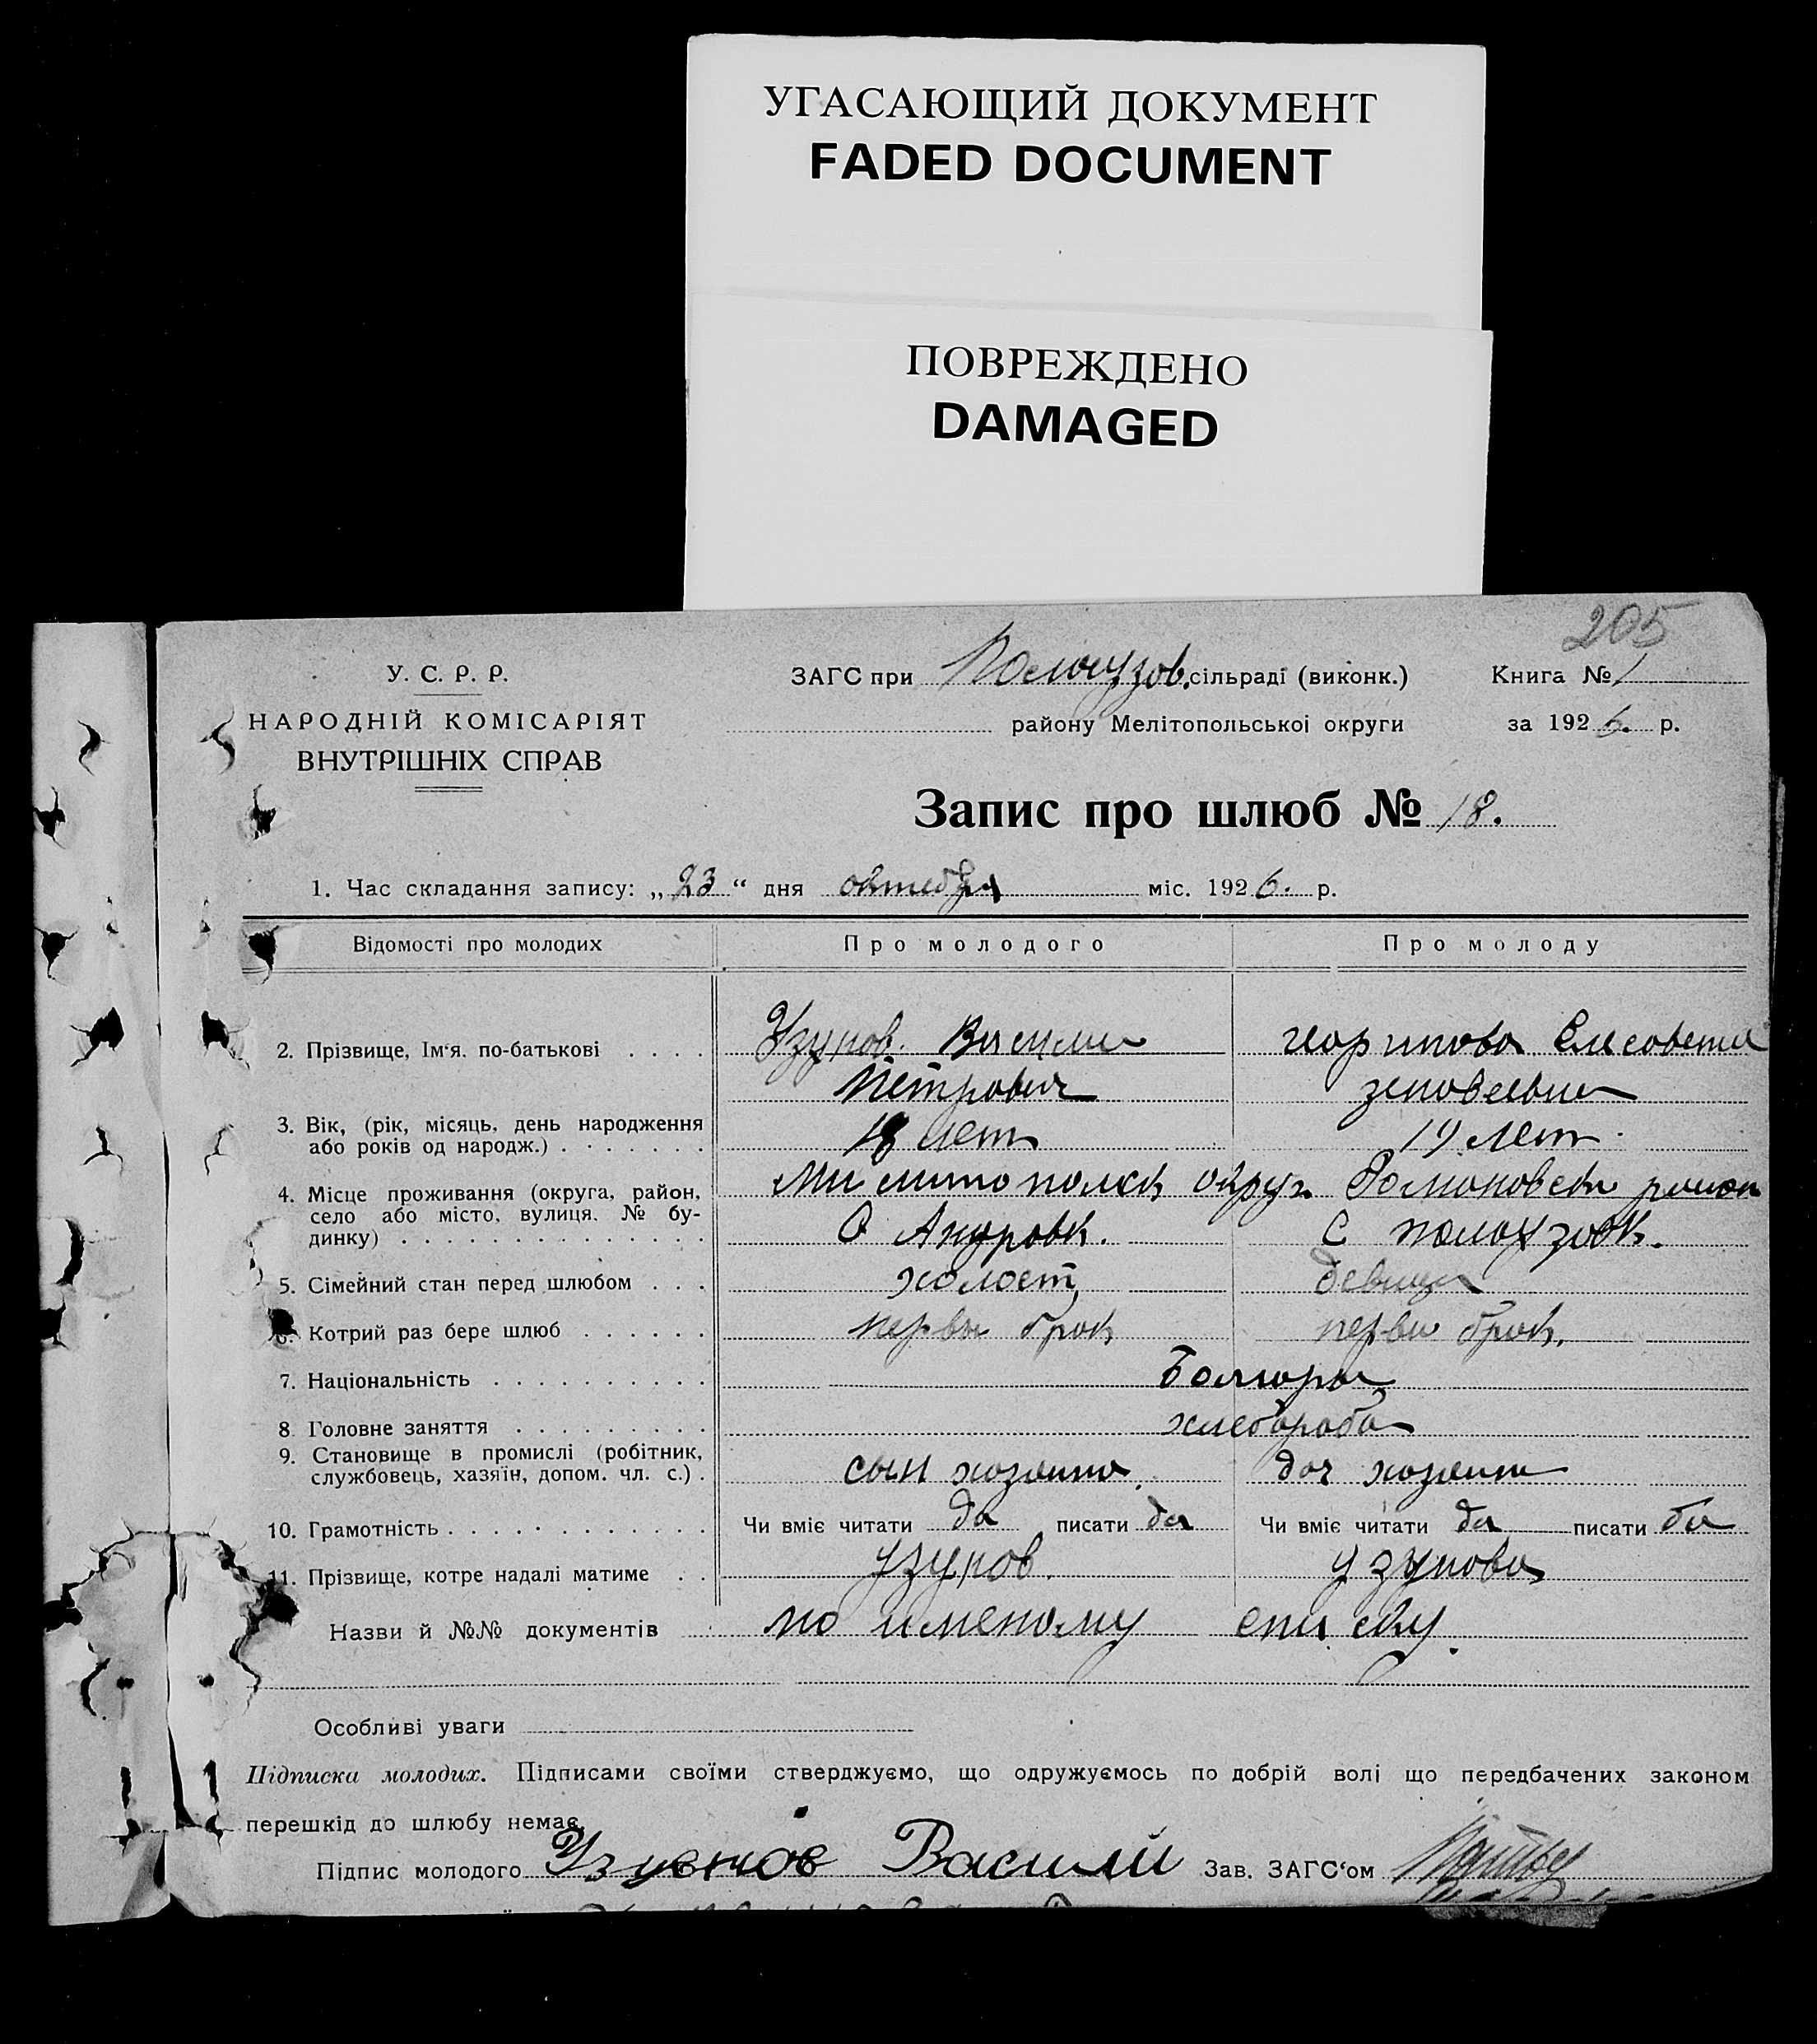 УГАСАЮЩИЙ ДОКУМЕНТ
FADED DOCUMENT
ПОВРЕЖДЕНО
DAMAGED
205
У. С. Р. Р.
НАРОДНІЙ КОМІСАРІЯТ
ВНУТРІШНІХ СПРАВ
ЗАГС при сільраді (виконк.)
Книга № 1
району Мелітопольської округи
за 1926. р.
Запис про шлюб № 18.
1. Час складання запису: „23“ дня октебря міс. 1926. р.
Відомості про молодих
Про молодого
Про молоду
2. Прізвище, Ім‘я. по-батькові
Узунов. Васили
Елесовета
Петрович
3. Вік, (рік, місяць, день народження
або років од народж.)
18 лет
19 лет
4. Місце проживання (округа, район,
село або місто, вулиця. № бу-
динку)
Милитополск округ. Романовски район
С
С
5. Сімейний стан перед шлюбом
холост
девица
6. Котрий раз бере шлюб
первы брак
перви брак.
7. Національність
Болгоры
8. Головне заняття
хлебороба
9. Становище в промислі (робітник,
службовець, хазяїн, допом. чл. с.)
сын хозяина.
доч хозяина
10. Грамотність
Чи вміє читати да писати да
Чи вміє читати да писати да
11. Прізвище, котре надалі матиме
узунов.
узунова
Назви й №№ документів
по именому списку.
Особливі уваги
Підписка молодих. Підписами своїми стверджуємо, що одружуємось по добрій волі що передбачених законом
перешкід до шлюбу немає.
Підпис молодого Узунов Василй Зав. ЗАГС‘ом